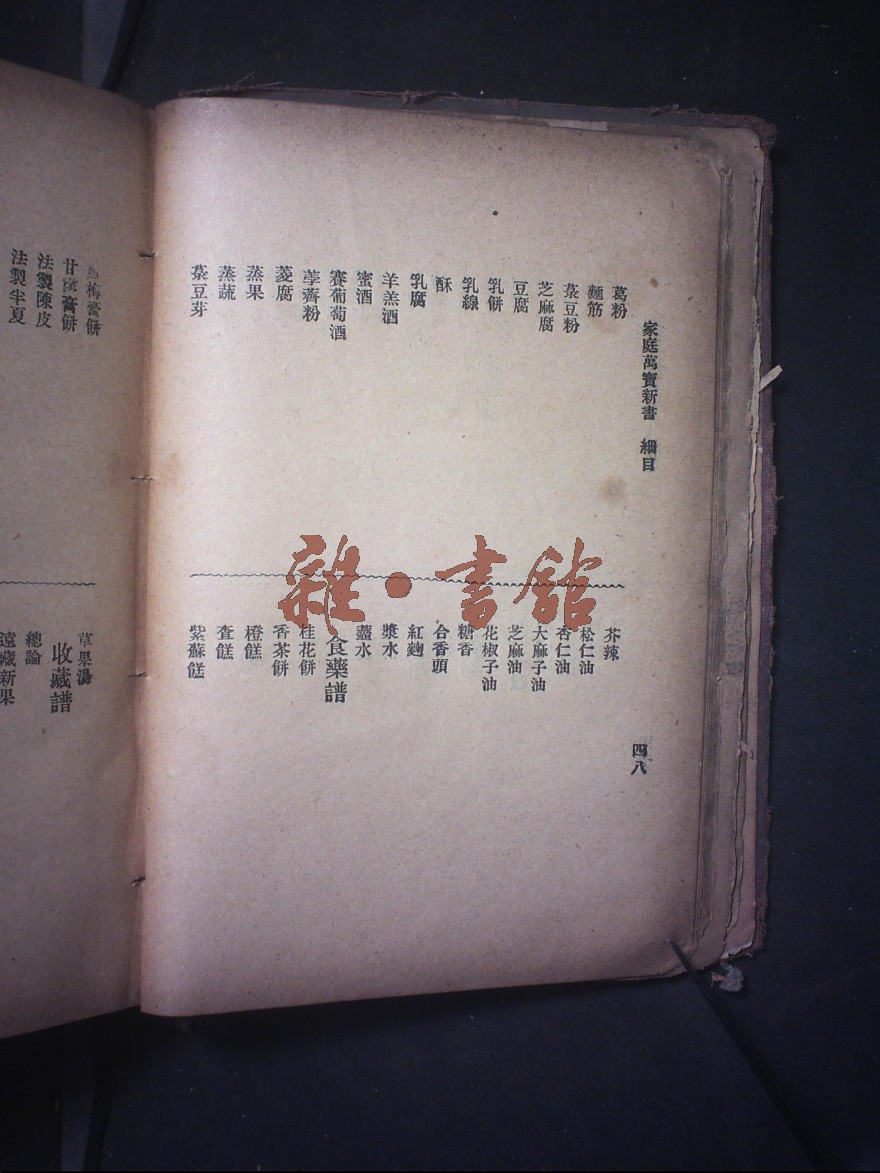 家庭萬寶新書　細目
四八
葛粉
麵筋
菉豆粉
芝麻腐
豆腐
乳餅
乳線
酥
乳腐
羊羔酒
蜜酒
賽葡萄酒
荸薺粉
菱腐
蒸果
蒸蔬
菉豆芽
芥辣
松仁油
杏仁油
大麻子油
芝麻油
花椒子油
糖香
合香頭
紅麯
漿水
虀水
食藥譜
桂花餅
香茶餅
橙糕
查糕
紫蘇糕
梅膏餅
甘露膏餅
法製陳皮
法製半夏
草果湯
收藏譜
總論
遠藏新果
雜·書館